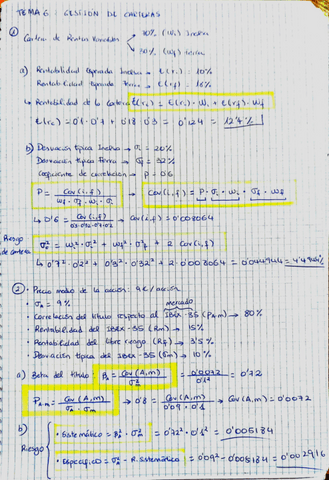 TEMA 6 : GESTIÓN DE CARTERAS
① Cartera de Renta Variable → 70% (Wi) Indra
30% (Wf)
a) Rentabilidad Esperada Indra → E(ri) = 10%
Rentabilidad Esperada → E(rf) = 18%
↳ Rentabilidad de la cartera E(rc) = E(ri) · Wi + E(rf) · Wf
E(rc) = 0'1 · 0'7 + 0'18 · 0'3 = 0'124 = 12'4%
b) Desviación típica Indra → σi = 20%
Desviación típica → σf = 32%
Coeficiente de correlación → P = 0'6
P = Cov(i,f) / Wf · σf · Wi · σi → Cov(i,f) = P · σi · Wi · σf · Wf
↳ 0'6 = Cov(i,f) / 0'3 · 0'32 · 0'7 · 0'2 → Cov(i,f) = 0'008064
Riesgo de cartera
σc² = Wi² · σi² + Wf² · σf² + 2 Cov(i,f)
↳ 0'7² · 0'2² + 0'3² · 0'32² + 2 · 0'008064 = 0'044944 = 4'4944%
② · Precio medio de la acción: 9€/acción
· σA = 9% mercado
· Correlación del título respecto al IBEX-35 (PA,m) → 80%
· Rentabilidad del IBEX-35 (Rm) → 15%
· Rentabilidad del libre riesgo (Rf) → 3'5%
· Desviación típica del IBEX-35 (σm) → 10%
a) Beta del título: βA = Cov(A,m) / σm² = 0'0072 / 0'1² = 0'72
PA,m = Cov(A,m) / σA · σm → 0'8 = Cov(A,m) / 0'09 · 0'1 → Cov(A,m) = 0'0072
b) Riesgo
· Sistemático = βA² · σm² = 0'72² · 0'1² = 0'005184
· Específico = σA² - R. Sistemático = 0'09² - 0'005184 = 0'002916